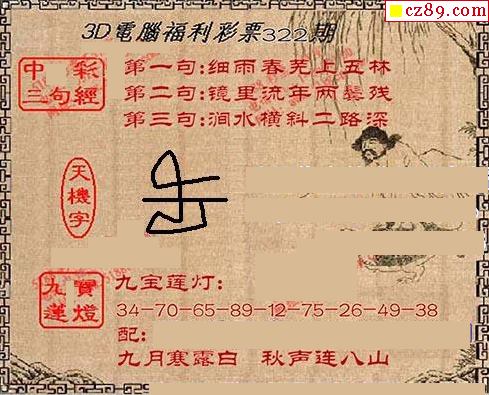 cz89.com
3D電腦福利彩票322期
中彩
三句經
第一句:细雨春芜上五林
第二句:镜里流年两鬓残
第三句:涧水横斜二路深
天機字
九寶
蓮燈
九宝莲灯:
34-70-65-89-12-75-26-49-38
配:
九月寒露白 秋声连八山